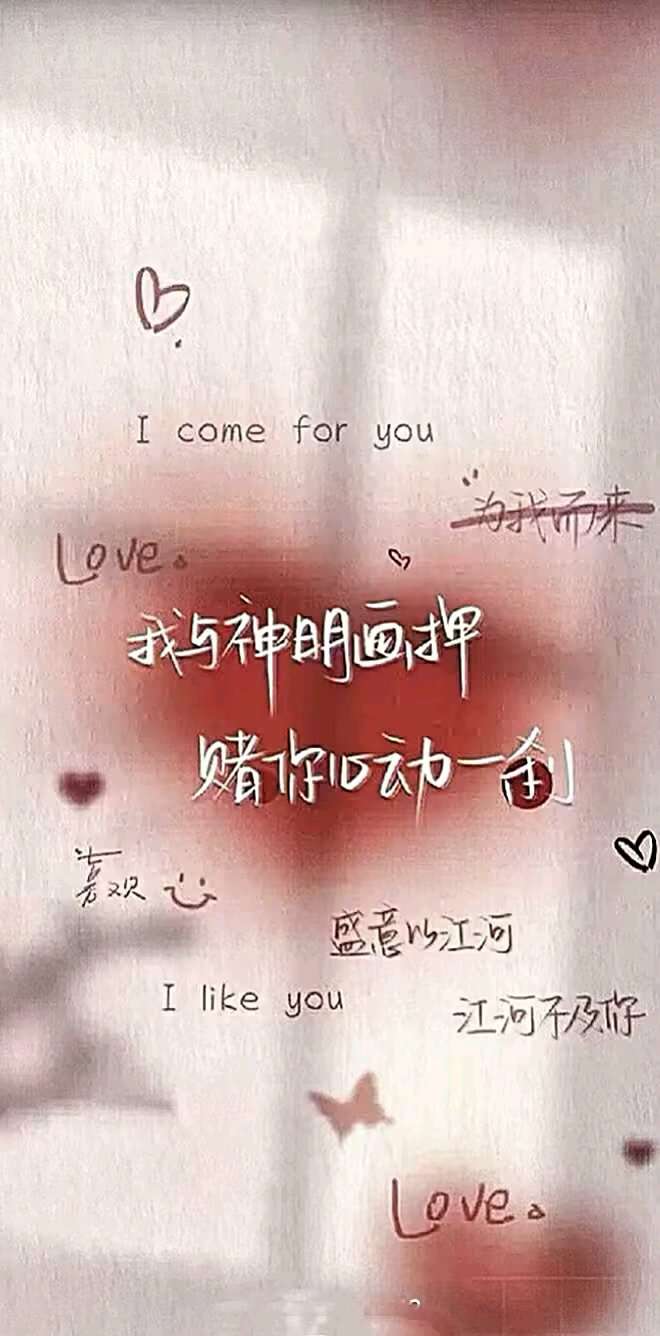 I come for you
为我而来
Love.
我与神明画押
赌你心动一刹
喜欢
盛意以江河
I like you
江河不及你
Love.